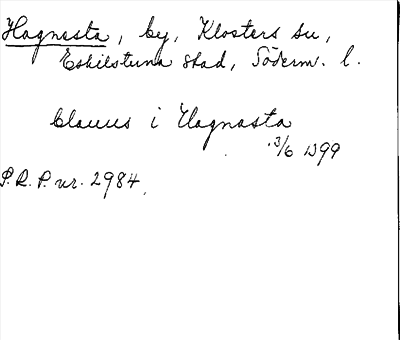 Hagnesta, by, Klosters sn,
Eskilstuna stad, Söderm. l.
Clauus i Hagnasta
3/6 1399
S.R.P. nr. 2984.